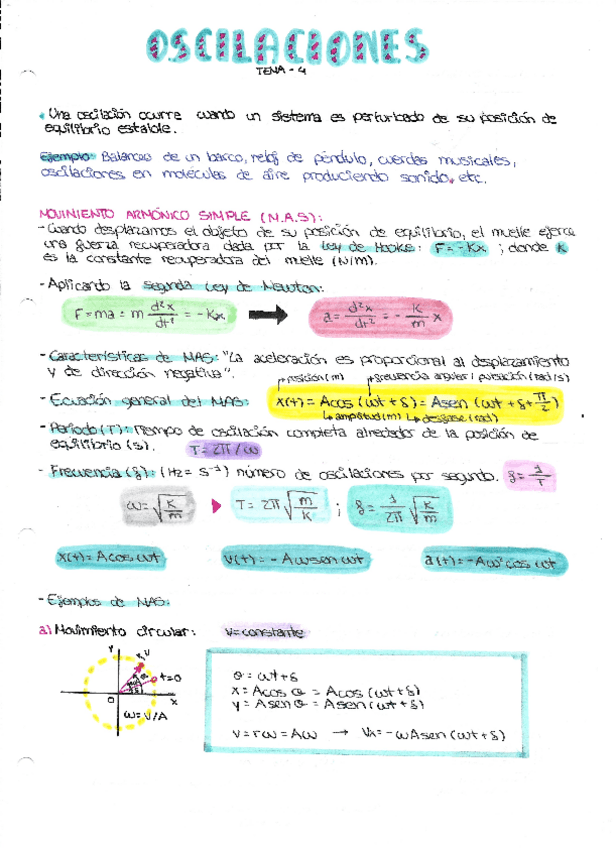 OSCILACIONES
TEMA - 4
• Una oscilación ocurre cuando un sistema es perturbado de su posición de
equilibrio estable.
Ejemplo: Balanceo de un barco, reloj de péndulo, cuerdas musicales,
oscilaciones en moléculas de aire produciendo sonido, etc.
MOVIMIENTO ARMÓNICO SIMPLE (M.A.S):
- Cuando desplazamos el objeto de su posición de equilibrio, el muelle ejerce
una fuerza recuperadora dada por la Ley de Hooke: F = -Kx ; donde K
es la constante recuperadora del muelle (N/m).
- Aplicando la segunda Ley de Newton:
F = ma = m d²x/dt² = -Kx → a = d²x/dt² = - K/m x
- Características de MAS: "La aceleración es proporcional al desplazamiento
y de dirección negativa".
posición (m) frecuencia angular / pulsación (rad/s)
- Ecuación general del MAS: x(t) = A cos (ωt + δ) = A sen (ωt + δ + π/2)
↳ amplitud (m) ↳ desfase (rad)
- Período (T): Tiempo de oscilación completa alrededor de la posición de
equilibrio (s). T = 2π/ω
- Frecuencia (f): (Hz = s⁻¹) número de oscilaciones por segundo. f = 1/T
ω = √K/m ▸ T = 2π √m/K ; f = 1/2π √K/m
x(t) = A cos ωt v(t) = - Aω sen ωt a(t) = -Aω² cos ωt
- Ejemplos de MAS:
a) Movimiento circular: v = constante
y
x, v
θ
δ
t=0
0
x
ω = v/A
θ = ωt + δ
x = A cos θ = A cos (ωt + δ)
y = A sen θ = A sen (ωt + δ)
v = rω = Aω → Vx = -ωA sen (ωt + δ)